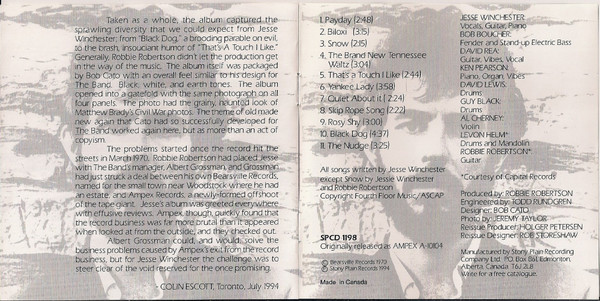 Taken as a whole, the album captured the
sprawling diversity that we could expect from Jesse
Winchester; from "Black Dog," a brooding parable on evil,
to the brash, insouciant humor of "That's A Touch I Like."
Generally, Robbie Robertson didn't let the production get
in the way of the music. The album itself was packaged
by Bob Cato with an overall feel similar to his design for
The Band. Black, white, and earth tones. The album
opened into a gatefold with the same photograph on all
four panels. The photo had the grainy, haunted look of
Matthew Brady's Civil War photos. The theme of old made
new again that Cato had so successfully developed for
The Band worked again here, but as more than an act of
copyism.
The problems started once the record hit the
streets in March 1970. Robbie Robertson had placed Jesse
with The Band's manager, Albert Grossman, and Grossman
had just struck a deal between his own Bearsville Records,
named for the small town near Woodstock where he had
an estate, and Ampex Records, a newly-formed offshoot
of the tape giant. Jesse's album was greeted everywhere
with effusive reviews. Ampex, though, quickly found that
the record business was far more brutal than it appeared
when looked at from the outside, and they checked out.
Albert Grossman could, and would, solve the
business problems caused by Ampex's exit from the record
business, but for Jesse Winchester the challenge was to
steer clear of the void reserved for the once promising.
- COLIN ESCOTT, Toronto, July 1994
1. Payday (2:48)
2. Biloxi (3:15)
3. Snow (2:15)
4. The Brand New Tennessee
Waltz (3:04)
5. That's a Touch I Like (2:44)
6. Yankee Lady (3:58)
7. Quiet About it (2:24)
8. Skip Rope Song (2:22)
9. Rosy Shy (3:00)
10. Black Dog (4:37)
11. The Nudge (3:25)
All songs written by Jesse Winchester
except Snow by Jessie Winchester
and Robbie Robertson
Copyright Fourth Floor Music/ASCAP
SPCD 1198
Originally released as AMPEX A-10104
℗ Bearsville Records 1970
© Stony Plain Records 1994
Made in Canada
JESSE WINCHESTER:
Vocals, Guitar, Piano
BOB BOUCHER:
Fender and Stand-up Electric Bass
DAVID REA:
Guitar, Vibes, Vocal
KEN PEARSON:
Piano, Organ, Vibes
DAVID LEWIS:
Drums
GUY BLACK:
Drums
AL CHERNEY:
Violin
LEVON HELM*:
Drums and Mandolin
ROBBIE ROBERTSON*:
Guitar
*Courtesy of Capitol Records
Produced by: ROBBIE ROBERTSON
Engineered by: TODD RUNDGREN
Designer: BOB CATO
Photo by: JEREMY TAYLOR
Reissue Producer: HOLGER PETERSEN
Reissue Designer: ROB STORESHAW
Manufactured by Stony Plain Recording
Company Ltd. P.O. Box 861 Edmonton,
Alberta, Canada T5J 2L8
Write for a free catalogue.